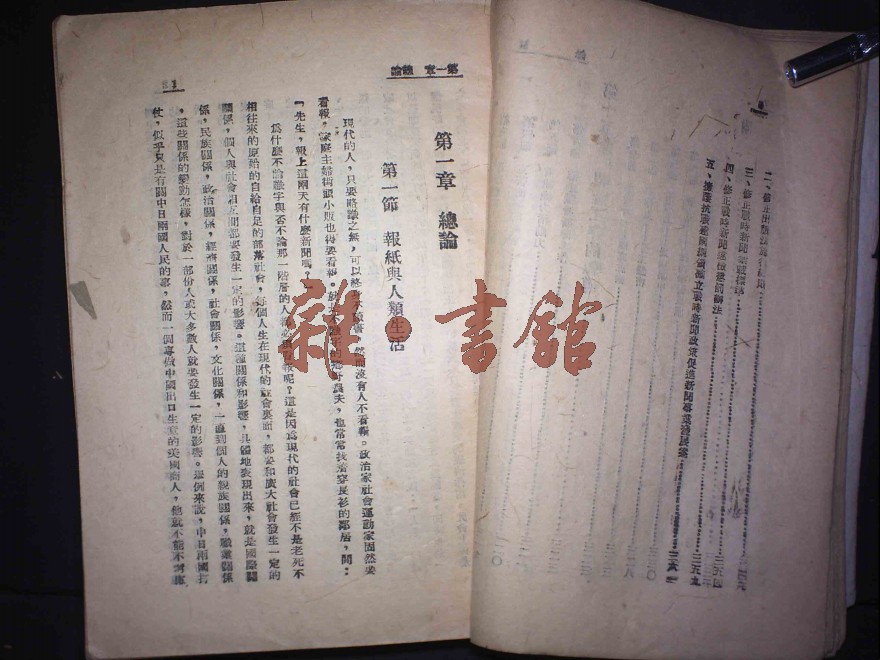 二、修正出版法施行細則
三、修正戰時新聞禁載標準
四、修正戰時新聞違檢懲罰辦法
五、擁護抗戰建國綱領確立戰時新聞政策促進新聞事業發展案
第一章 總論
第一章 總論
第一節 報紙與人類生活
現代的人,只要略識之無,可以終身不讀書,然而沒有人不看報。政治家社會運動家固然要
看報,家庭主婦街頭小販也得要看報。就是不識字的鄉村農夫,也常常找着穿長衫的鄰居,問:
「先生,報上這兩天有什麼新聞嗎?」
爲什麼不論識字與否不論那一階層的人都必須看報呢?這是因爲現代的社會已經不是老死不
相往來的原始的自給自足的部落社會,每個人生在現代的社會裏面,都要和廣大社會發生一定的
關係,個人與社會相互間都要發生一定的影響。這種關係和影響,具體地表現出來,就是國際關
係,民族關係,政治關係,經濟關係,社會關係,文化關係,一直到個人的親族關係,職業關係
,這些關係的變動怎樣,對於一部份人或大多數人就要發生一定的影響。舉例來說,中日兩國打
仗,似乎只是有關中日兩國人民的事,然而一個專做中國出口生意的美國商人,他就不能不考慮
雜·書館